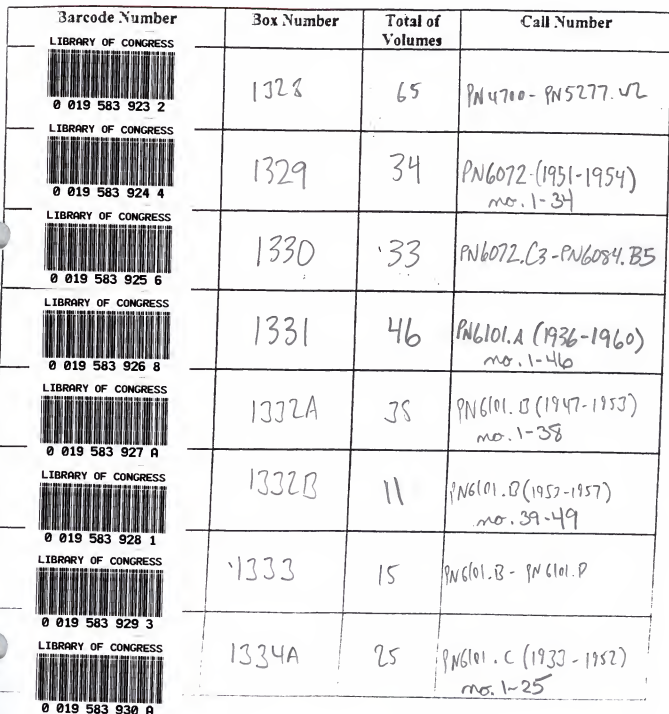 Barcode Number Box Number Total of Volumes Call Number
LIBRARY OF CONGRESS
0 019 583 923 2
1328 65 PN4700 - PN5277.V2
LIBRARY OF CONGRESS
0 019 583 924 4
1329 34 PN6072 (1951-1954)
no. 1-34
LIBRARY OF CONGRESS
0 019 583 925 6
1330 33 PN6072.C3-PN6084.B5
LIBRARY OF CONGRESS
0 019 583 926 8
1331 46 PN6101.A (1936-1960)
no. 1-46
LIBRARY OF CONGRESS
0 019 583 927 A
1332A 38 PN6101.B (1947-1953)
no. 1-38
LIBRARY OF CONGRESS
0 019 583 928 1
1332B 11 PN6101.B (1953-1957)
no. 39-49
LIBRARY OF CONGRESS
0 019 583 929 3
1333 15 PN6101.B - PN6101.P
LIBRARY OF CONGRESS
0 019 583 930 A
1334A 25 PN6101.C (1933-1952)
no. 1-25